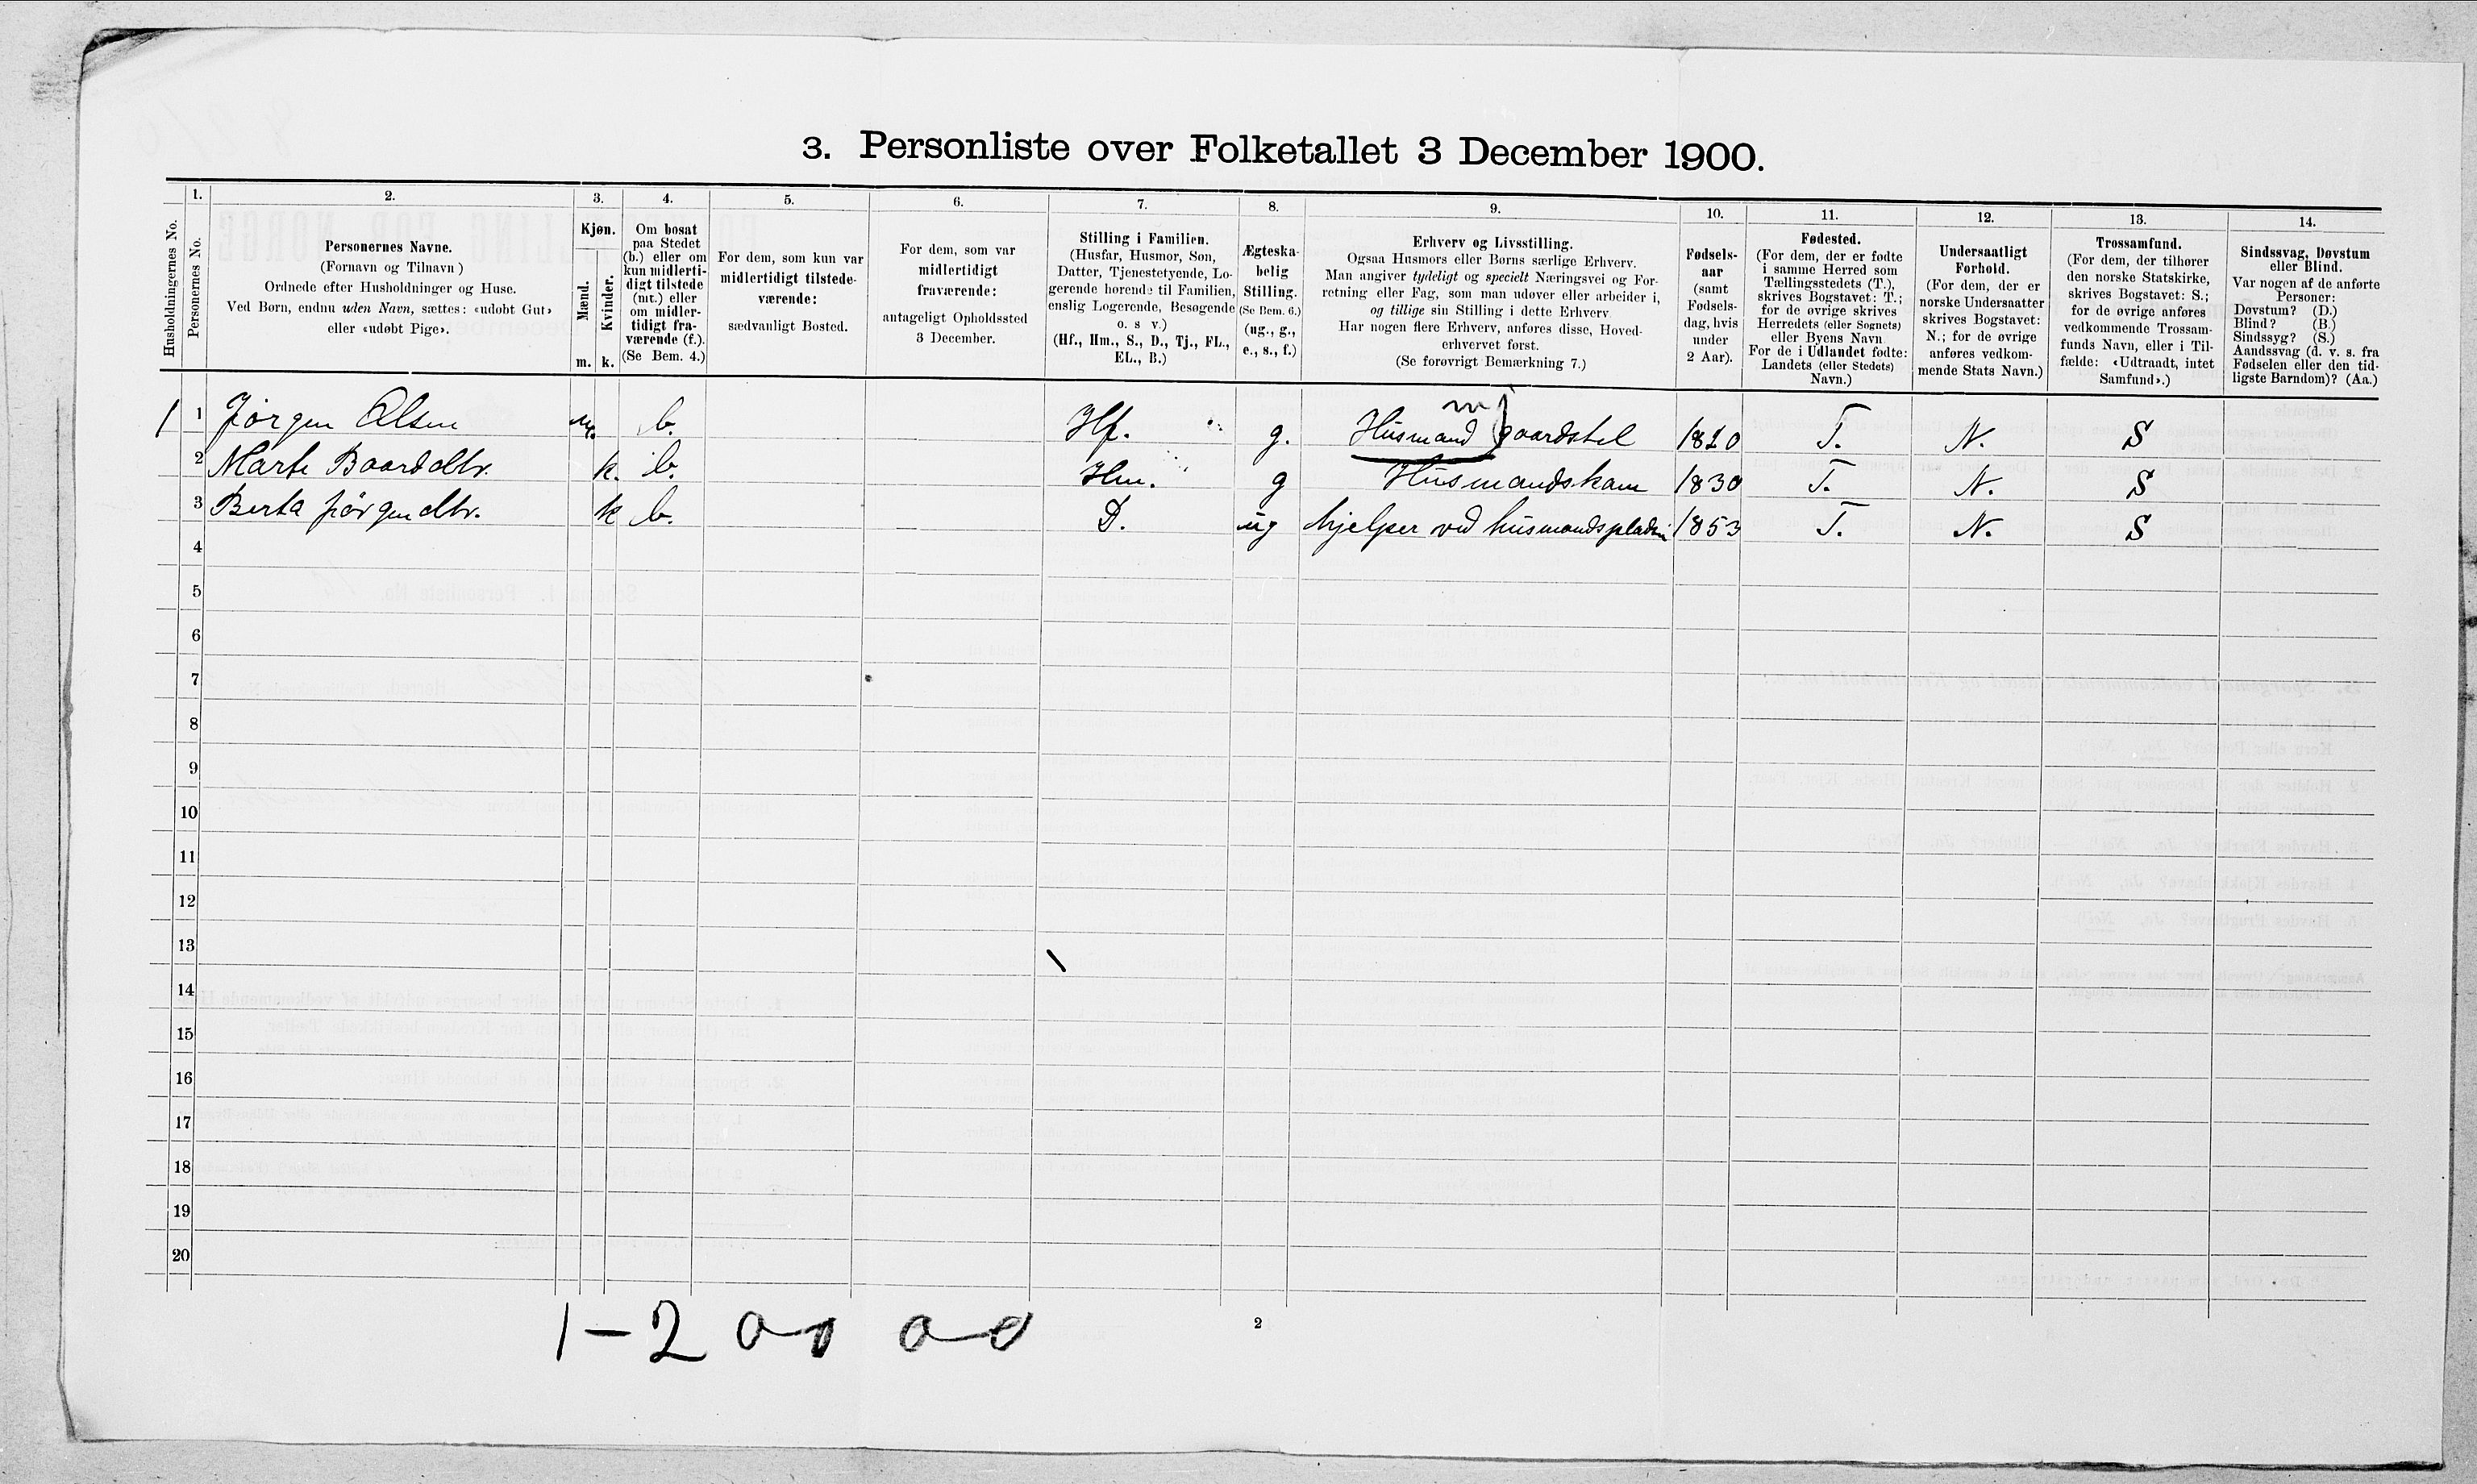 3. Personliste over Folketallet 3 December 1900.
Husholdningernes No.
1.
Personernes No.
2.
Personernes Navne.
(Fornavn og Tilnavn)
Ordnede efter Husholdninger og Huse.
Ved Børn, endnu uden Navn, sættes: «udøbt Gut»
eller «udøbt Pige».
3.
Kjøn.
Mænd.
Kvinder.
m. k.
4.
Om bosat
paa Stedet
(b.) eller om
kun midlerti-
digt tilstede
(mt.) eller
om midler-
tidigt fra-
værende (f.).
(Se Bem. 4.)
5.
For dem, som kun var
midlertidigt tilstede-
værende:
sædvanligt Bosted.
6.
For dem, som var
midlertidigt
fraværende:
antageligt Opholdssted
3 December.
7.
Stilling i Familien.
(Husfar, Husmor, Søn,
Datter, Tjenestetyende, Lo-
gerende hørende til Familien,
enslig Logerende, Besøgende
o. s v.)
(Hf., Hm., S., D., Tj., FL.,
EL., B.)
8.
Ægteska-
belig
Stilling.
(Se Bem. 6.)
(ug., g.,
e., s., f.)
9.
Erhverv og Livsstilling.
Ogsaa Husmors eller Børns særlige Erhverv.
Man angiver tydeligt og specielt Næringsvei og For-
retning eller Fag, som man udøver eller arbeider i,
og tillige sin Stilling i dette Erhverv
Har nogen flere Erhverv, anføres disse, Hoved-
erhvervet først.
(Se forøvrigt Bemærkning 7.)
10.
Fødsels-
aar
(samt
Fødsels-
dag, hvis
under
2 Aar).
11.
Fødested.
(For dem, der er fødte
i samme Herred som
Tællingsstedets (T.),
skrives Bogstavet: T.;
for de øvrige skrives
Herredets (eller Sognets)
eller Byens Navn
For de i Udlandet fødte:
Landets (eller Stedets)
Navn.)
12.
Undersaatligt
Forhold.
(For dem, der er
norske Undersaatter
skrives Bogstavet:
N.; for de øvrige
anføres vedkom-
mende Stats Navn.)
13.
Trossamfund.
(For dem, der tilhører
den norske Statskirke,
skrives Bogstavet: S.;
for de øvrige anføres
vedkommende Trossam-
funds Navn, eller i Til-
fælde: «Udtraadt, intet
Samfund».)
14.
Sindssvag, Døvstum
eller Blind.
Var nogen af de anførte
Personer:
Døvstum? (D.)
Blind? (B.)
Sindssyg? (S.)
Aandssvag (d. v. s. fra
Fødselen eller den tid-
ligste Barndom)? (Aa.)
mj
1 1 Jørgen Olsen m. b. Hf. g. Husmand gaardstel 1820 T. N. S
2 Marte Baardsdtr. k. b. Hm. g Husmandskone 1830 T. N. S
3 Berta Jørgendtr. k b. D. ug hjelper ved husmandspladsen 1853 T. N. S
4
5
6
7
8
9
10
11
12
13
14
15
16
17
18
19
20
1–2 0–1 0–0
2